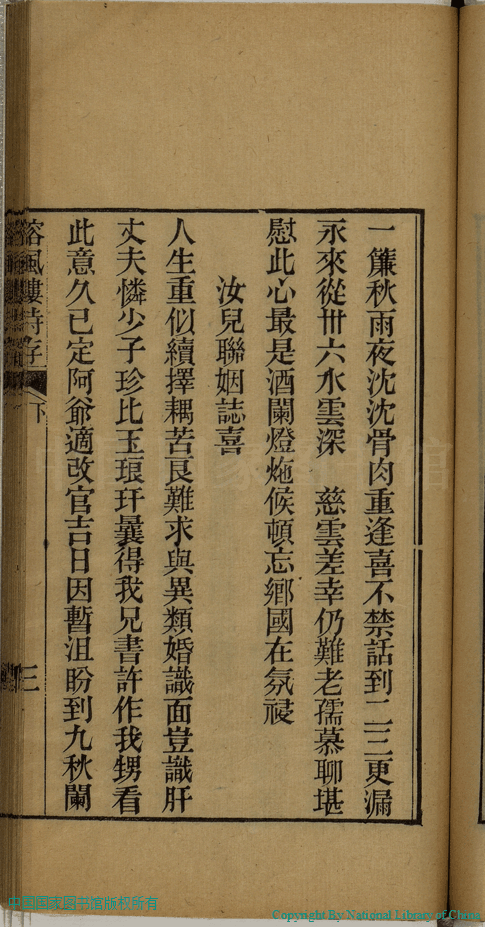 一簾秋雨夜沈沈骨肉重逢喜不禁話到二三更漏
永來從卅六水雲深　慈雲差幸仍難老孺慕聊堪
慰此心最是酒闌燈炧候頓忘鄉國在氛祲
汝兒聯姻誌喜
人生重似續擇耦苦良難求與異類婚識面豈識肝
丈夫憐少子珍比玉琅玕曩得我兄書許作我甥看
此意久已定阿爺適改官吉日因暫沮盼到九秋闌
風樓詩存
下
三
中国国家图书馆版权所有
Copyright By National Library of China